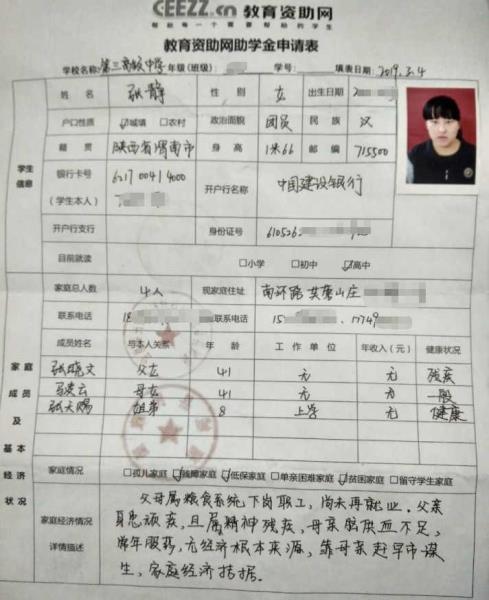 CEEZZ.cn 教育资助网
教育资助网助学金申请表
学校名称: 第三高级中学 年级(班级): 学号: 填表日期: 2019.3.4
姓名 张静 性别 女 出生日期
户口性质 ☑城镇 □农村 政治面貌 团员 民族 汉
籍贯 陕西省渭南市 身高 1米66 邮编 715500
学生信息
银行卡号(学生本人) 6217 0041 4000
开户行名称 中国建设银行
开户行支行 身份证号 610526
目前就读 □小学 □初中 ☑高中
家庭总人数 4人 现家庭住址 南环路 山庄
联系电话 18 联系电话 15 17749
成员姓名 与本人关系 年龄 工作单位 年收入(元) 健康状况
张晓文 父女 41 无 无 残疾
云 母女 41 无 无 一般
张天赐 姐弟 8 上学 无 健康
家庭成员及基本经济状况
家庭情况 □孤儿家庭 ☑残障家庭 ☑低保家庭 □单亲困难家庭 ☑贫困家庭 □留守学生家庭
家庭经济情况详情描述
父母属粮食系统下岗职工,尚未再就业。父亲
身患顽疾,且属精神残疾,母亲脑供血不足,
常年服药,无经济根本来源,靠母亲赶早市谋
生,家庭经济拮据。